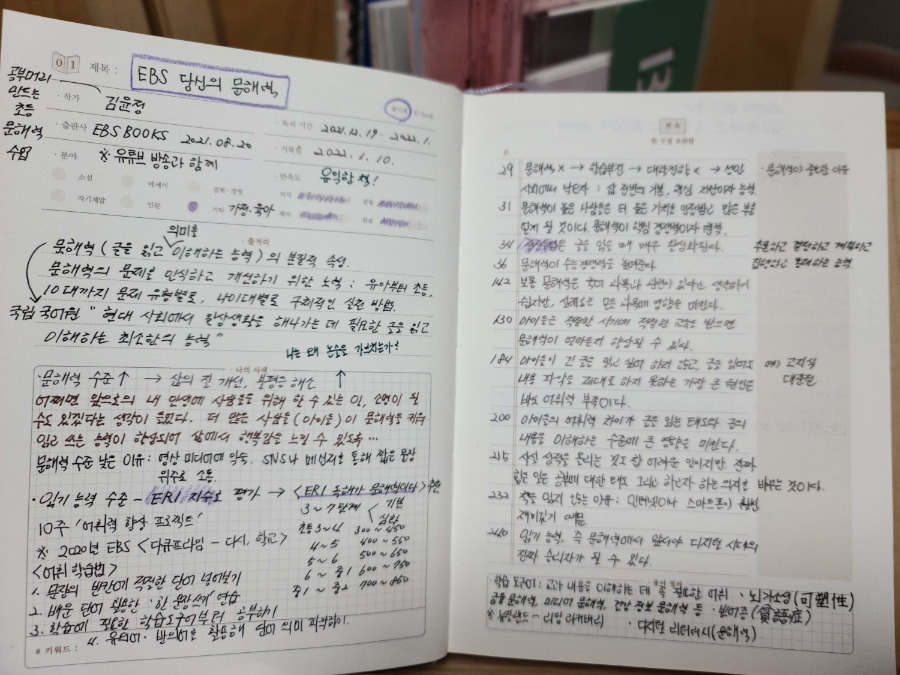 01 제목 : EBS 당신의 문해력
공부머리
만드는
초등
문해력
수업
· 작가 김윤정
· 출판사 EBS BOOKS 2021.08.20
· 분야 ※ 유튜브 방송과 함께
소설 에세이 경제·경영
자기계발 인문 기타 가정·육아
· 독서 기간 2021.12.19 - 2022.1.
· 기록일 2022.1.10.
· 만족도 유익함 책!
· 줄거리
의미를
문해력 (글을 읽고 이해하는 능력) 의 본질적 속성
문해력의 문제를 인식하고 개선하기 위한 노력 : 유아부터 초등,
10대까지 문제 유형별로, 나이대별로 구체적인 실천 방법.
국립 국어원 " 현대 사회에서 일상생활을 해나가는 데 필요한 글을 읽고
이해하는 최소한의 능력 "
나는 왜 논술을 가르치는가?
· 나의 사례
· 문해력 수준 ↑ → 삶의 질 개선, 불평등 해소 ↑
어쩌면 앞으로의 내 인생에 사람들을 위해 할 수 있는 일, 소명이 될
수도 있겠다는 생각이 들었다. 더 많은 사람들 (아이들) 이 문해력을 키워
읽고 쓰는 능력이 향상되어 삶에서 행복감을 느낄 수 있도록 …
문해력 수준 낮은 이유 : 영상 미디어에 익숙. SNS나 메신저를 통해 짧은 문장
위주로 소통
· 읽기 능력 수준 - ERI 지수로 평가 → < ERI 독해가 문해력이다 > 추천
3~7단계 < 기본
심화
10주 '어휘력 향상 프로젝트'
초등 3~4 300~450
※ 2020년 EBS <다큐프라임 - 다시, 학교>
4~5 400~550
<어휘 학습법>
5~6 500~650
1. 문장의 빈칸에 적절한 단어 넣어보기
6~중1 600~750
2. 배운 단어 활용한 '한 문장쓰기' 연습
중1~중2 700~850
3. 학습에 필요한 학습도구어부터 공부하기
4. 유의어·반의어를 활용해 단어 의미 파악하기.
# 키워드 :
P.
29 문해력 × → 학습부진 → 대학진학 < → 성인
사회에서 낙오자 : 삶 전반의 기본, 핵심 자산이자 능력
문해력이 중요한 이유
31 문해력이 높은 사람들은 더 높은 가치를 인정받고 많은 부를
얻게 될 것이다. 문해력이 핵심 경쟁력이자 권력
34 은 글을 읽는 때 매우 활성화된다.
36 문해력이 수능 경쟁력을 높여준다
142
130 아이들은 적절한 시기에 적절한 교육 받으면
문해력이 얼마든지 향상될 수 있다.
184 아이들이 긴 글을 읽고 싶어 하지 않고, 글을 읽어도
내용 파악을 제대로 하지 못하는 가장 큰 원인은
바로 어휘력 부족이다.
예) 고지식
대관절
200 아이들의 어휘력 차이가 글을 읽는 태도와 글의
내용을 이해하는 수준에 큰 영향을 미친다.
215 사실 성적을 올리는 것도 참 어려운 일이지만 진짜
바꾸는 것이다.
232 책을 읽지 않는 이유 : 인터넷이나 스마트폰이 훨씬
재미있기 때문
240 읽기 능력, 즉 문해력에서 앞서야 디지털 시대의
진짜 승리자가 될 수 있다.
학습 도구어 : 교과 내용을 이해하는 데 꼭 필요한 어휘 · 뇌가소성 (可塑性)
금융 문해력, 미디어 문해력, 건강 정보 문해력 등
· 디지털 리터러시 (문해력)